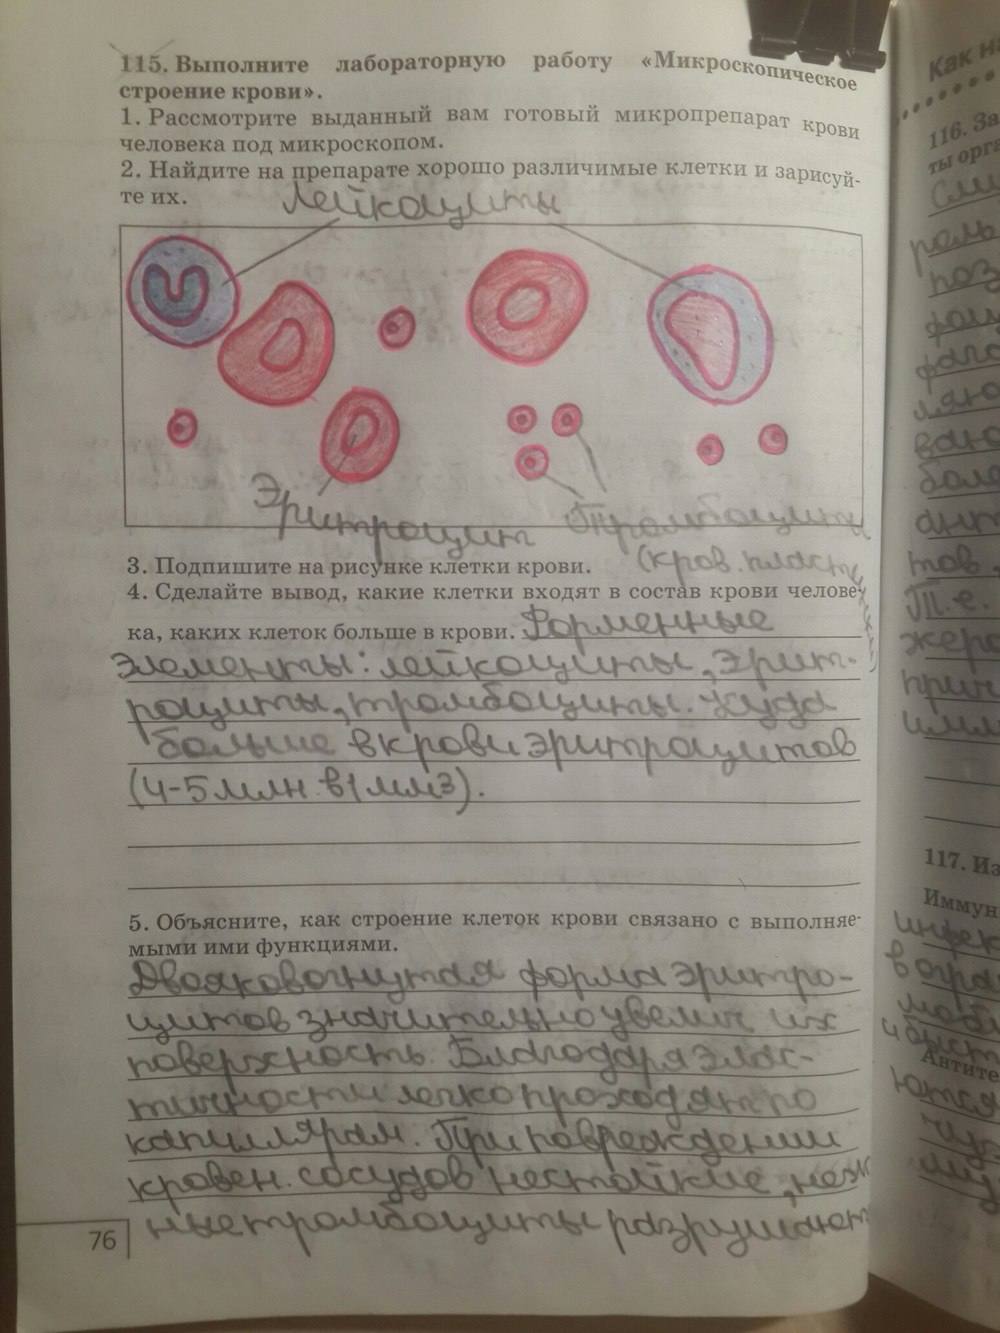 115. Выполните лабораторную работу «Микроскопическое
строение крови».
1. Рассмотрите выданный вам готовый микропрепарат крови
человека под микроскопом.
2. Найдите на препарате хорошо различимые клетки и зарисуй-
те их.
Лейкоциты
Эритроцит
Тромбоциты
(кров. пластинки)
3. Подпишите на рисунке клетки крови.
4. Сделайте вывод, какие клетки входят в состав крови челове-
ка, каких клеток больше в крови. Форменные
элементы: лейкоциты, эрит-
роциты, тромбоциты. Куда
больше в крови эритроцитов
(4-5 млн. в 1 мм3).
5. Объясните, как строение клеток крови связано с выполняе-
мыми ими функциями.
Двояковогнутая форма эритро-
цитов значительно увелич их
поверхность. Благодаря элас-
тичности легко проходят по
капиллярам. При повреждении
кровен. сосудов нестойкие, неж
ные тромбоциты разрушают
76
Как н
116. За
ты орга
роль
фаго
боле
ант
тов.
Т.е.
117. Из
Иммун
инфек
в орга
и быст
Антите
ются